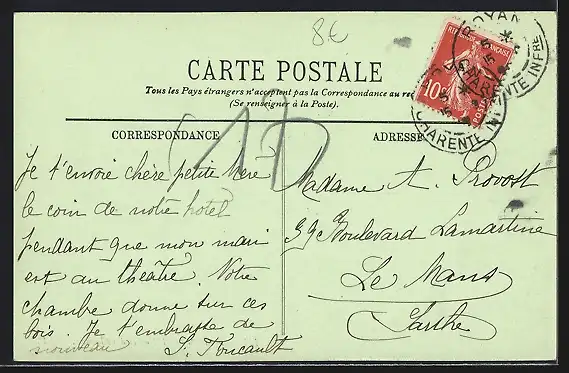 8€
CARTE POSTALE
Tous les Pays étrangers n'acceptent pas la Correspondance au
(Se renseigner à la Poste).
CORRESPONDANCE
ADRESSE
REPUBLIQUE FRANÇAISE
10c
POSTES
ROYAN
CHARENTE INFRE
CHARENTE IN
Je t'envoie chère petite Mère
le coin de notre hotel
pendant que mon mari
est au théatre. Notre
chambre donne sur ces
bois. Je t'embrasse de
nouveau
S. Foucault
Madame A. Provost
39c Boulevard Lamartine
Le Mans
Sarthe